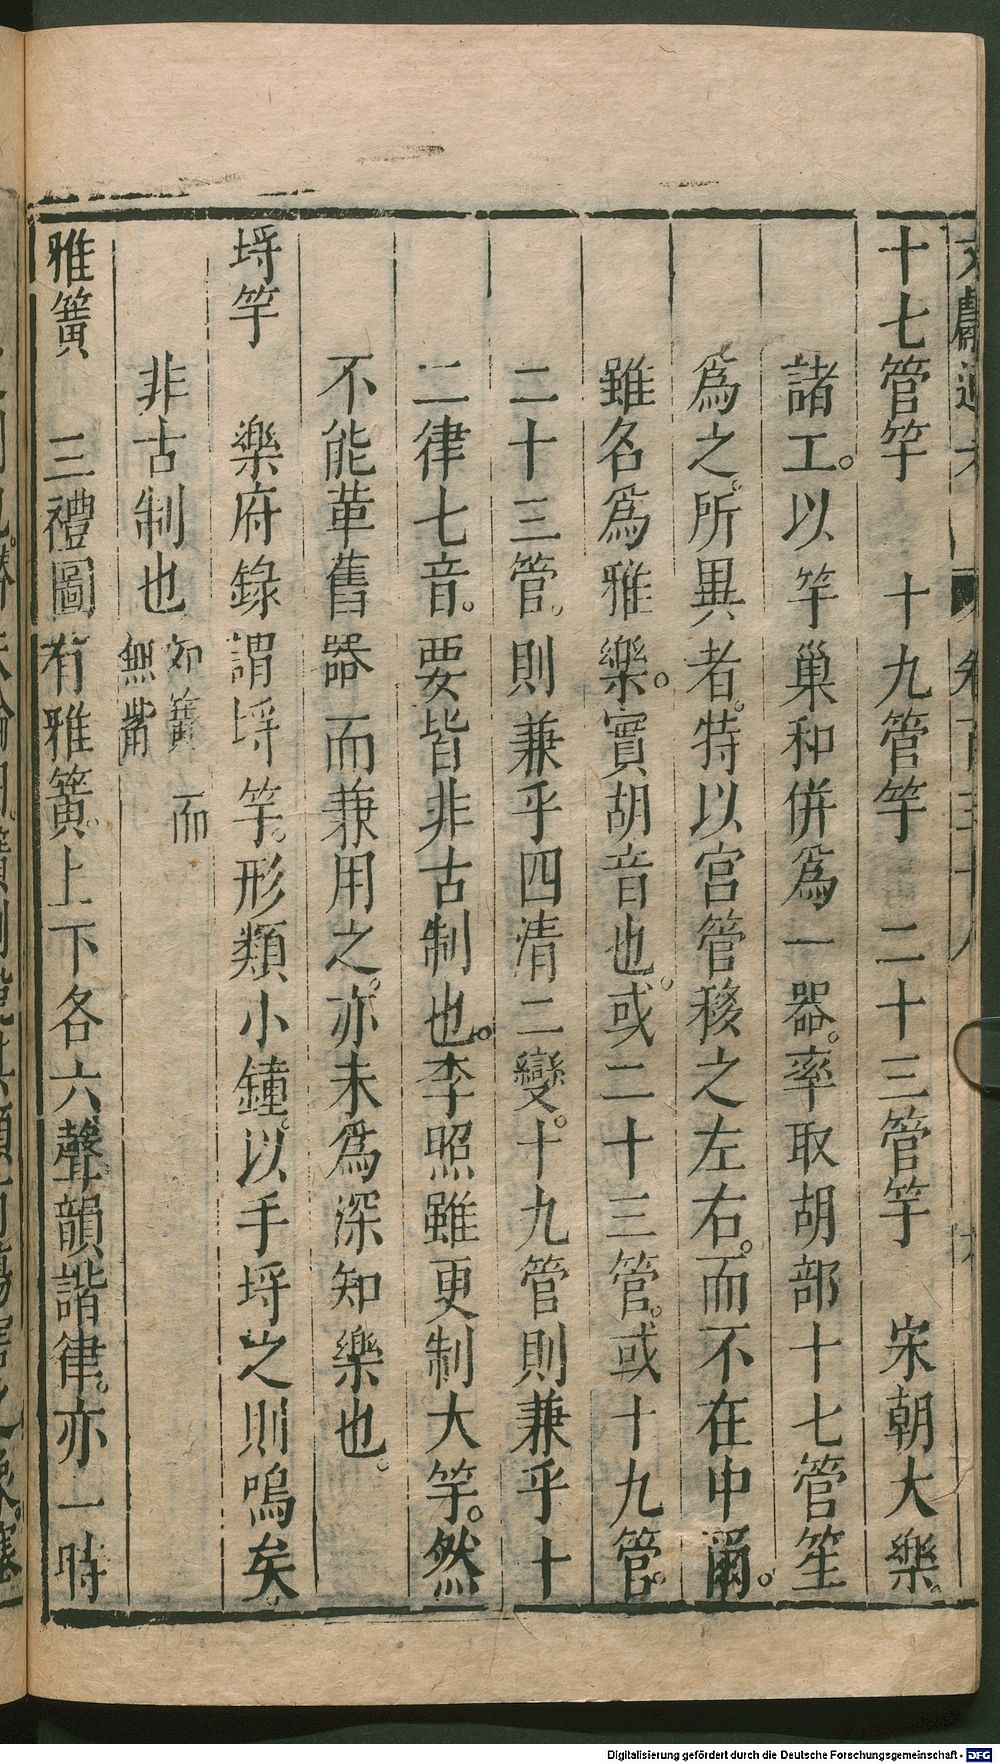 十七管竽　十九管竽　二十三管竽　宋朝大樂
諸工。以竽巢和併為一器。率取胡部十七管笙
為之。所異者。特以宮管移之左右。而不在中爾。
雖名為雅樂。實胡音也。或二十三管。或十九管。
二十三管。則兼乎四清二變。十九管則兼乎十
二律七音。要皆非古制也。李照雖更制大竽。然
不能革舊器而兼用之。亦未為深知樂也。
埓竽　樂府錄謂埓竽。形類小鐘。以手埓之則鳴矣。
非古制也
如簧 而
無觜
雅簧　三禮圖有雅簧。上下各六聲韻諧律。亦一時
Digitalisierung gefördert durch die Deutsche Forschungsgemeinschaft - DFG